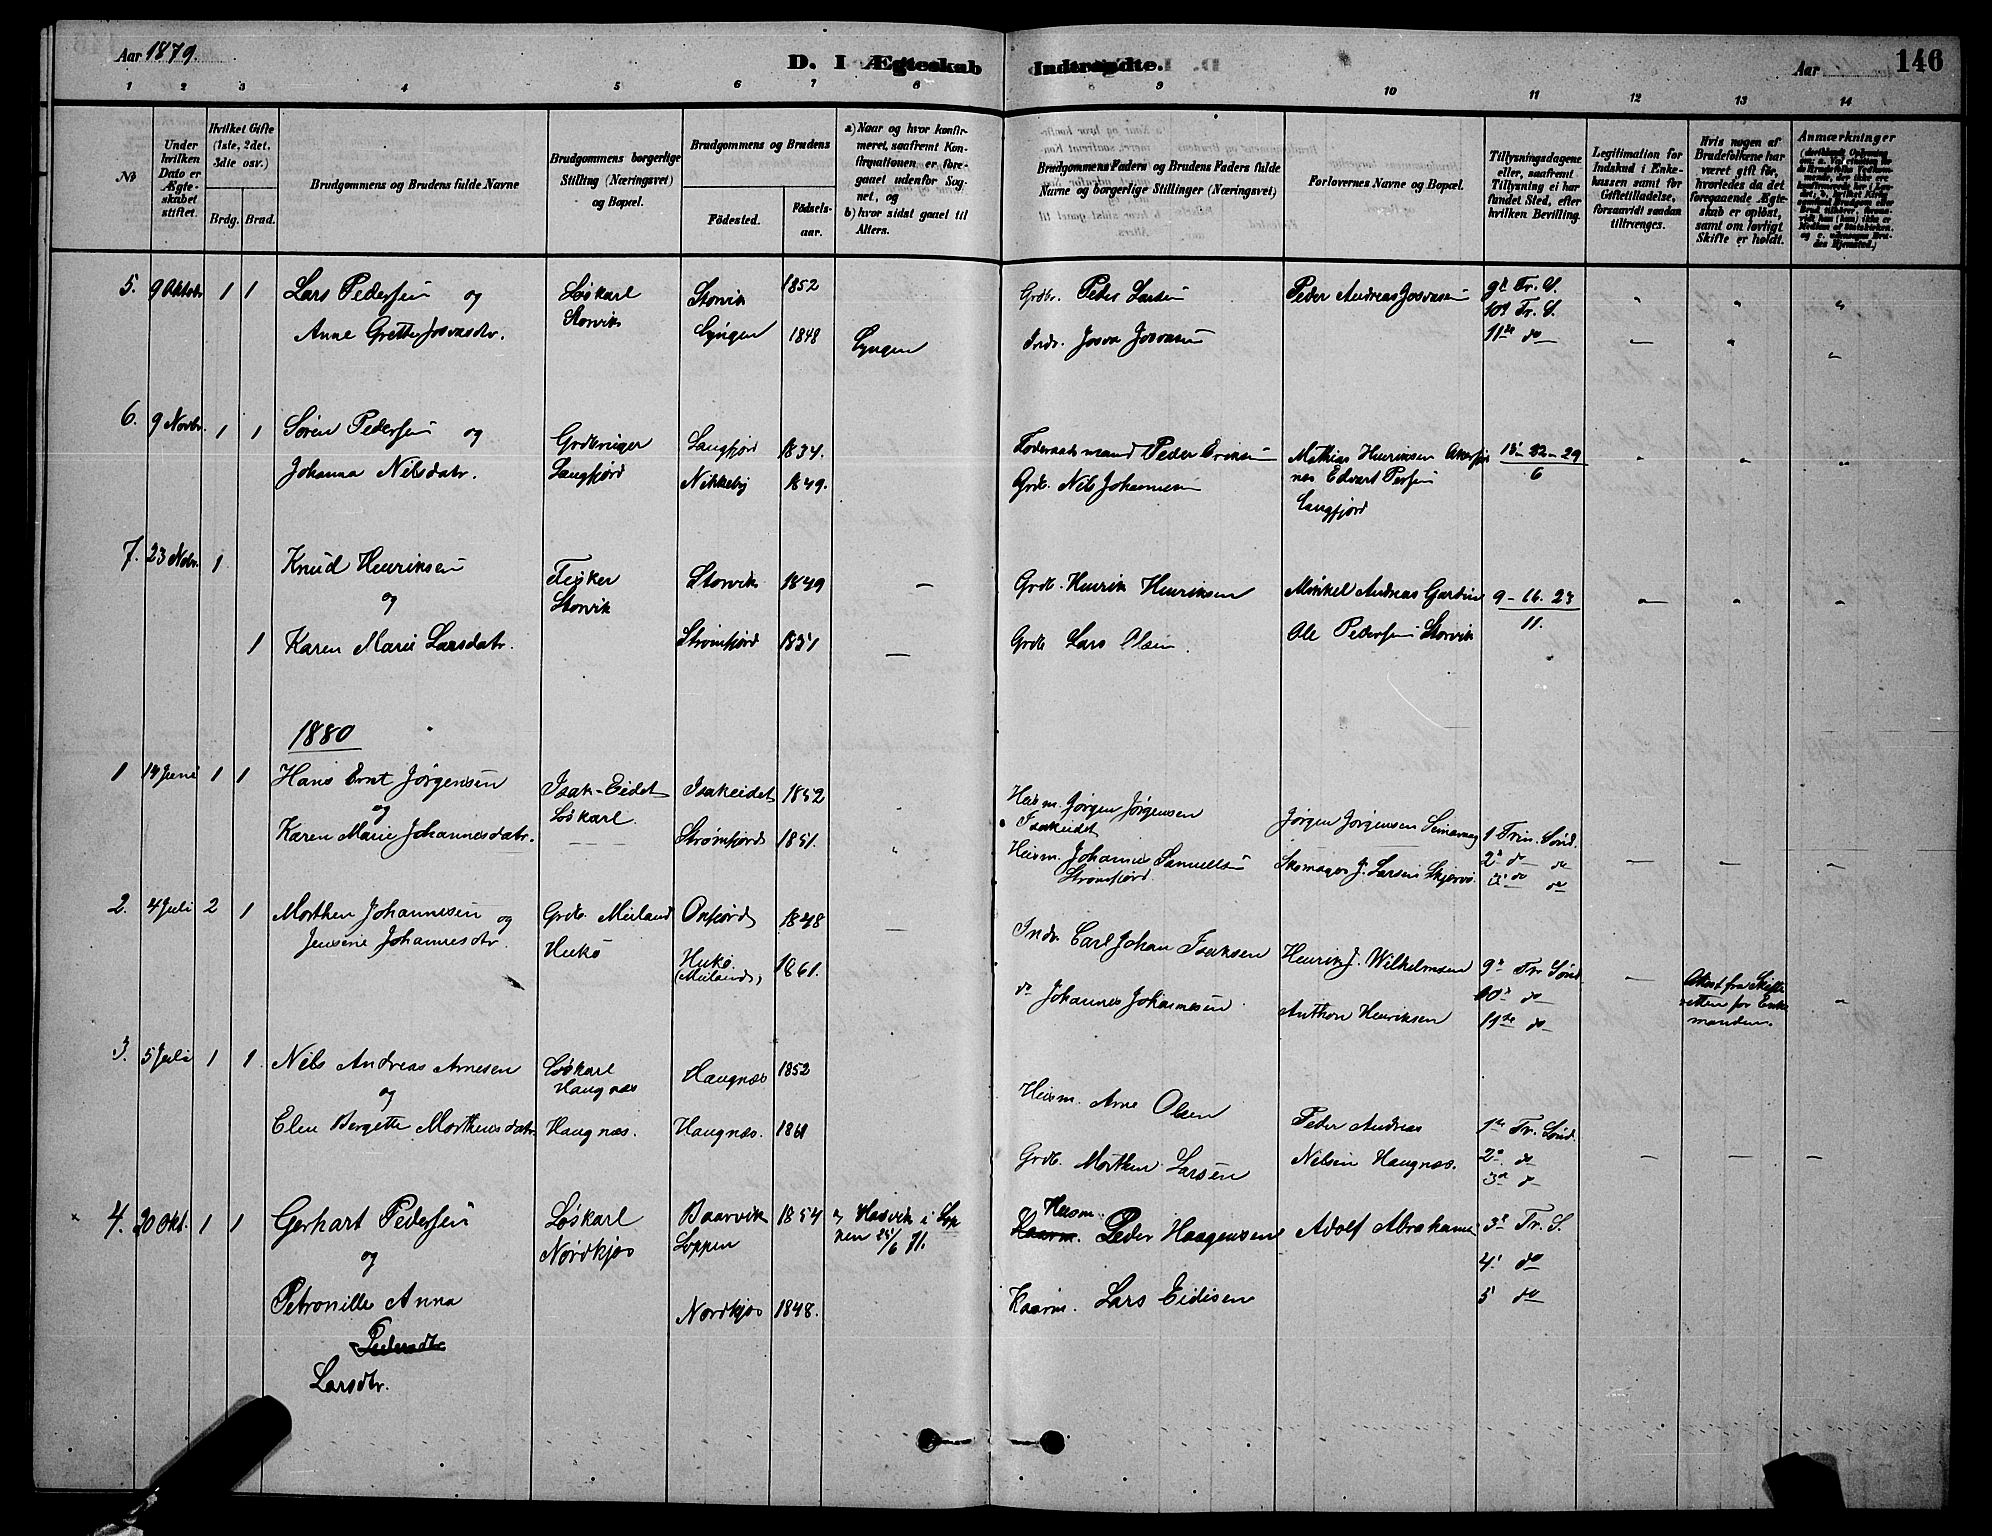 Aar 1879.
D. I Ægteskab Indtraadte.
Aar
146
1 2 3 4 5 6 7 8 9 10 11 12 13 14
No
Under hvilken Dato er Ægteskabet stiftet.
Hvilket Gifte (1ste, 2det, 3die osv.)
Brdg. Brud.
Brudgommens og Brudens fulde Navne
Brudgommens borgerlige Stilling (Næringsvei) og Bopæl.
Brudgommens og Brudens
Födested. Födselsaar.
a) Naar og hvor konfirmeret, saafremt Konfirmationen er foregaaet udenfor Sognet, og
b) hvor sidst gaaet til Alters.
Brudgommens Faders og Brudens Faders fulde Navne og borgerlige Stillinger (Næringsvei)
Forlovernes Navne og Bopæl.
Tillysningsdagene eller, saafremt Tillysning ei har fundet Sted, efter hvilken Bevilling.
Legitimation for Indskud i Enkekassen samt for Giftetilladelse, forsaavidt saadan tiltrænges.
Hvis nogen af Brudefolkene har været gift för, hvorledes da det foregaaende Ægteskab er oplöst, samt om lovligt Skifte er holdt.
Anmærkninger
5. 9 Oktob 1 1 Lars Pedersen og Løskarl Storvik 1852 Grdbr. Peder Larsen Peder Andreas Josvasen 9d Tr. S.
Storvik 10d Tr. S.
Anne Grethe Josvasdtr. Lyngen 1848 Lyngen Indr. Josva Josvasen 11te do
6. 9 Novbr. 1 1 Søren Pedersen og Grdbruger Langfjord 1834. Föderaadsmand Peder Eriksen Mathias Henriksen
Johanna Nilsdatr. Langfjord Nikkeby 1849. Grdb. Nils Johannesen Edvart Persen 6
Langfjord
7. 23 Nobr. 1 Knud Henriksen Fisker Storvik 1849 — Grdb. Henrik Henriksen Mikkel Andreas 9 – 16. 23
og Storvik 11.
1 Karen Marie Larsdatr. Strömfjord 1851 — Grdb Lars Olsen. Ole Pedersen Storvik
1880
1 1 1 Hans Ernt Jørgensen Isak-Eidet Isakeidet 1852 Heism. Jørgen Jørgensen Jørgen Jørgensen
og Løskarl. Isakeidet 1 Trin. Sönd.
Karen Marie Johannesdatr. Strømfjord 1851. Heism. Johannes Samuelsen Skomager J. Larsen Skjervö. 2d do do
Strömfjord. 3d do do
2. 4 Juli 2 1 Morthen Johannesen og Grdb. Meiland Oxfjord 1848 — Indr. Carl Johan Isaksen Henrik J. Wilhelmsen 9d Tr Sönd. — Attest fra Skifteretten for Enkemanden.
Jensine Johannesdtr. Hukö Hukö 1861.
(Meiland) do Johannes Johannesen Anthon Henriksen 10d do
11te do
3. 5 Juli 1 1. Nils Andreas Arnesen Løskarl Haugnæs 1852 Heism. Arne Olsen
og Haugnæs
Elen Bergette Morthensdatr Haugnæs. Haugnæs. 1861 Grdb. Morthen Larsen Peder Andreas Nilsen Haugnæs. 1te Tr. Sönd.
2d. do
3d d
4. 20 Okt. 1 1 Gerhart Pedersen Løskarl Baarvik 1854 a, Hasvik i Loppen 25/6 71. Heism. Peder Haagensen Adolf Abrahams 3d Tr. S.
og Nordkjos Loppen 4. do
Petronille Anna Nordkjos 1848. Kaarm. Lars Eidisen 5 do
Pedersdtr
Larsdtr.